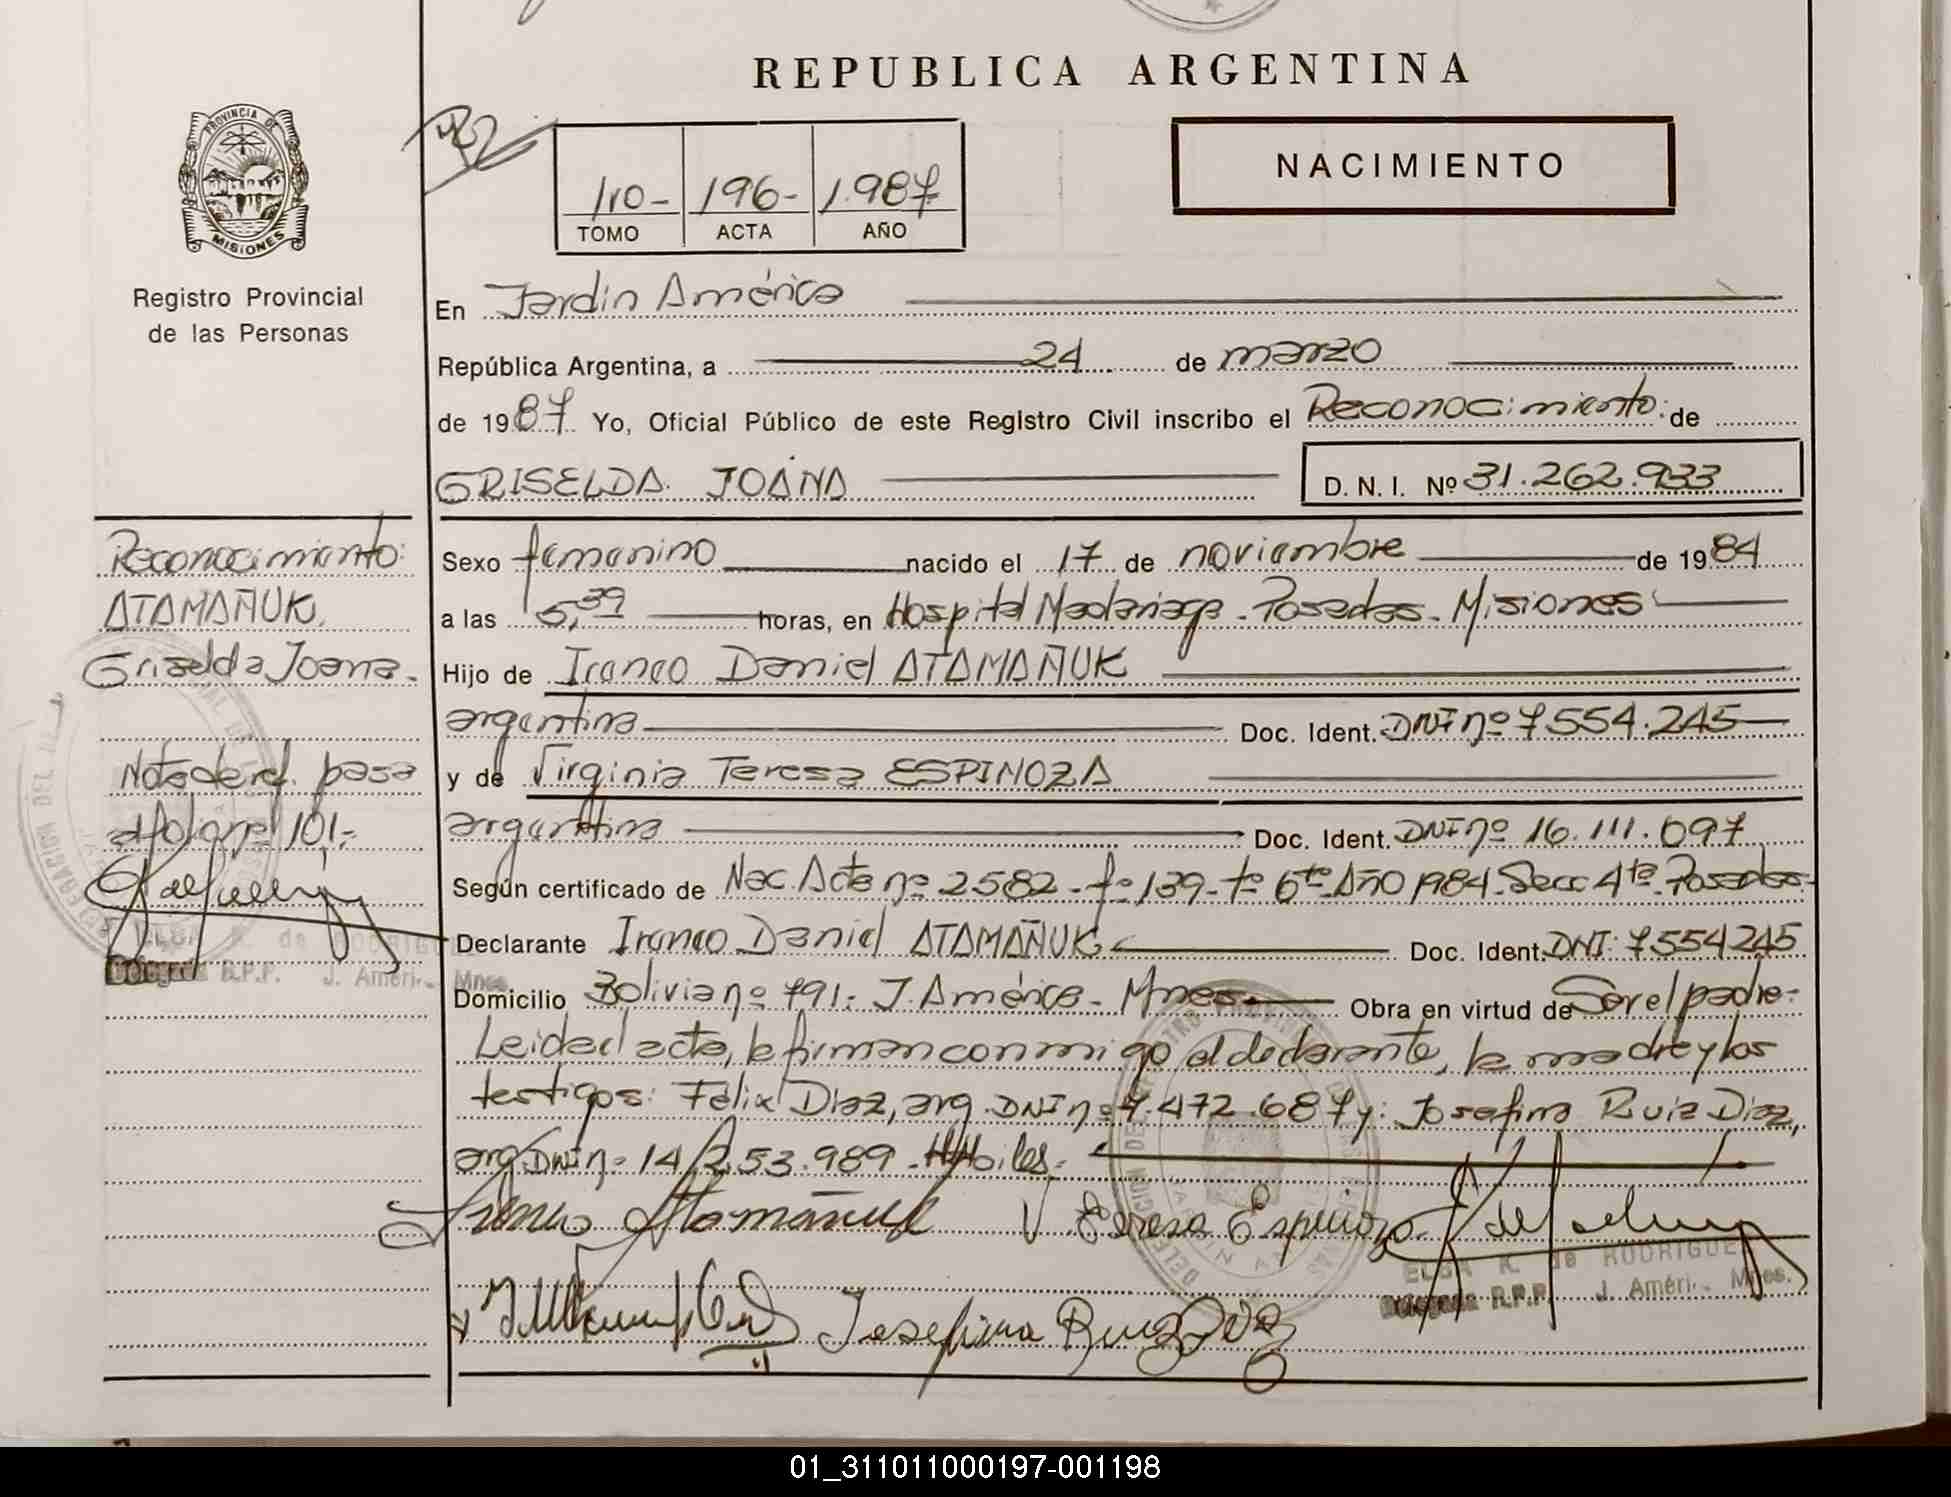 REPUBLICA ARGENTINA
PROVINCIA DE
MISIONES
1ro- 196- 1.987
TOMO ACTA AÑO
NACIMIENTO
Registro Provincial
de las Personas
En Jardin América
República Argentina, a 24 de marzo
de 1987 Yo, Oficial Público de este Registro Civil inscribo el Reconocimiento: de
GRISELDA JOANA D. N. I. Nº 31.262.933
Reconocimiento:
ATAMAÑUK,
Griselda Joana.
Nota de ref. pasa
al folio nº 101,-
Sexo femenino nacido el 17 de noviembre de 1984
a las 5,39 horas, en Hospital Madariaga - Posadas - Misiones
Hijo de Ireneo Daniel ATAMAÑUK
argentina Doc. Ident. DNI nº 7554.245
y de Virginia Teresa ESPINOZA
argentina Doc. Ident. DNI nº 16.111.097
Según certificado de Nac. Acta nº 2582 - fº 139 - tº 6to Año 1984. Secc 4ta. Posadas-
Declarante Ireneo Daniel ATAMAÑUK Doc. Ident. DNI: 7554245
Domicilio Bolivia nº 791: J. América - Mnes. Obra en virtud de Ser el padre-
Leida el acta, la firman conmigo el declarante, la madre y los
testigos: Félix Diaz, arg. DNI nº 7.472.687 y: Josefina Ruiz Diaz,
arg. DNI nº 14.253.989 - Hábiles.
Ireneo Atamañuk V Teresa Espinoza
Josefina Ruiz Diaz
ELBA K. de RODRIGUE
Delegada R.P.P. J. Améri.- Mnes.
ELBA K. de RODRIGU
Delegada R.P.P. J. Améri.- Mnes.
01_311011000197-001198